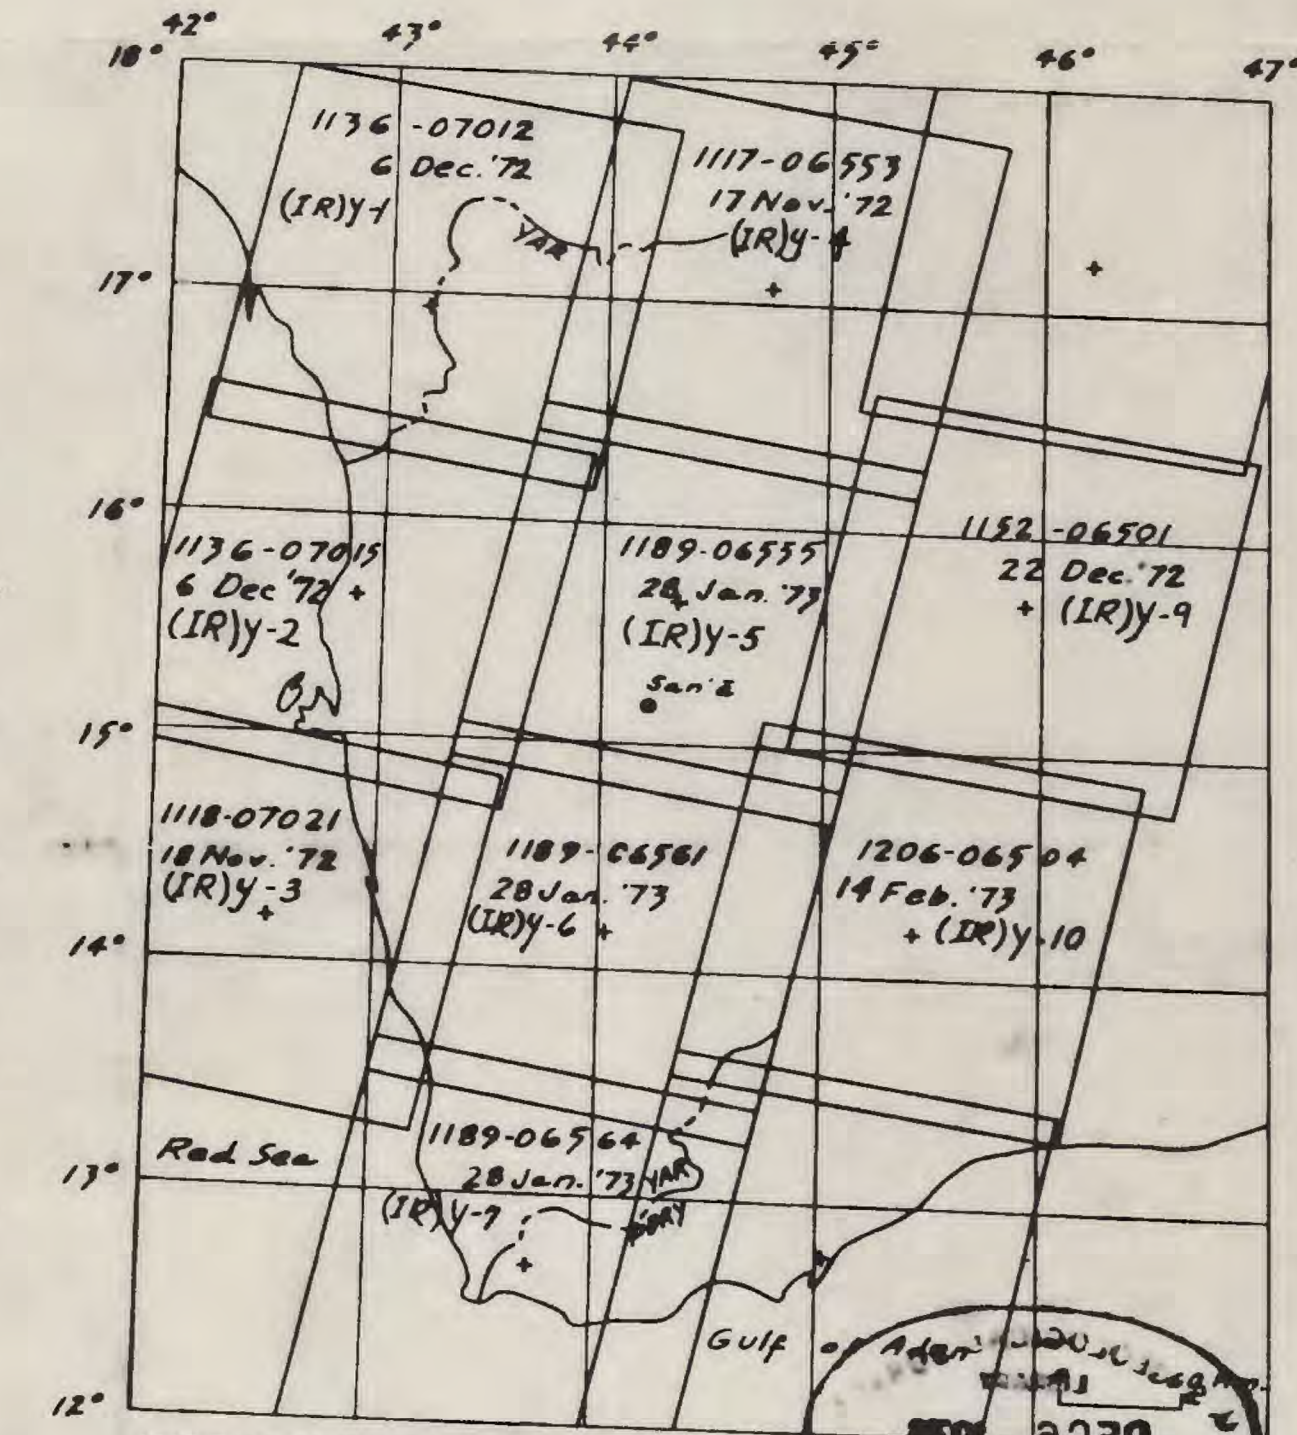 42° 43° 44° 45° 46° 47°
18°
1136-07012
6 Dec. '72
(IR)Y-1
1117-06553
17 Nov. '72
(IR)Y-4
YAR
17°
16°
1136-07015
6 Dec '72
(IR)Y-2
1189-06555
28 Jan. '73
(IR)Y-5
San'a
1152-06501
22 Dec. '72
(IR)Y-9
15°
1118-07021
18 Nov. '72
(IR)Y-3
1189-06561
28 Jan. '73
(IR)Y-6
1206-06504
14 Feb. '73
(IR)Y-10
14°
Red Sea
1189-06564
28 Jan. '73
(IR)Y-7
YAR
PDRY
13°
Gulf of Aden
12°